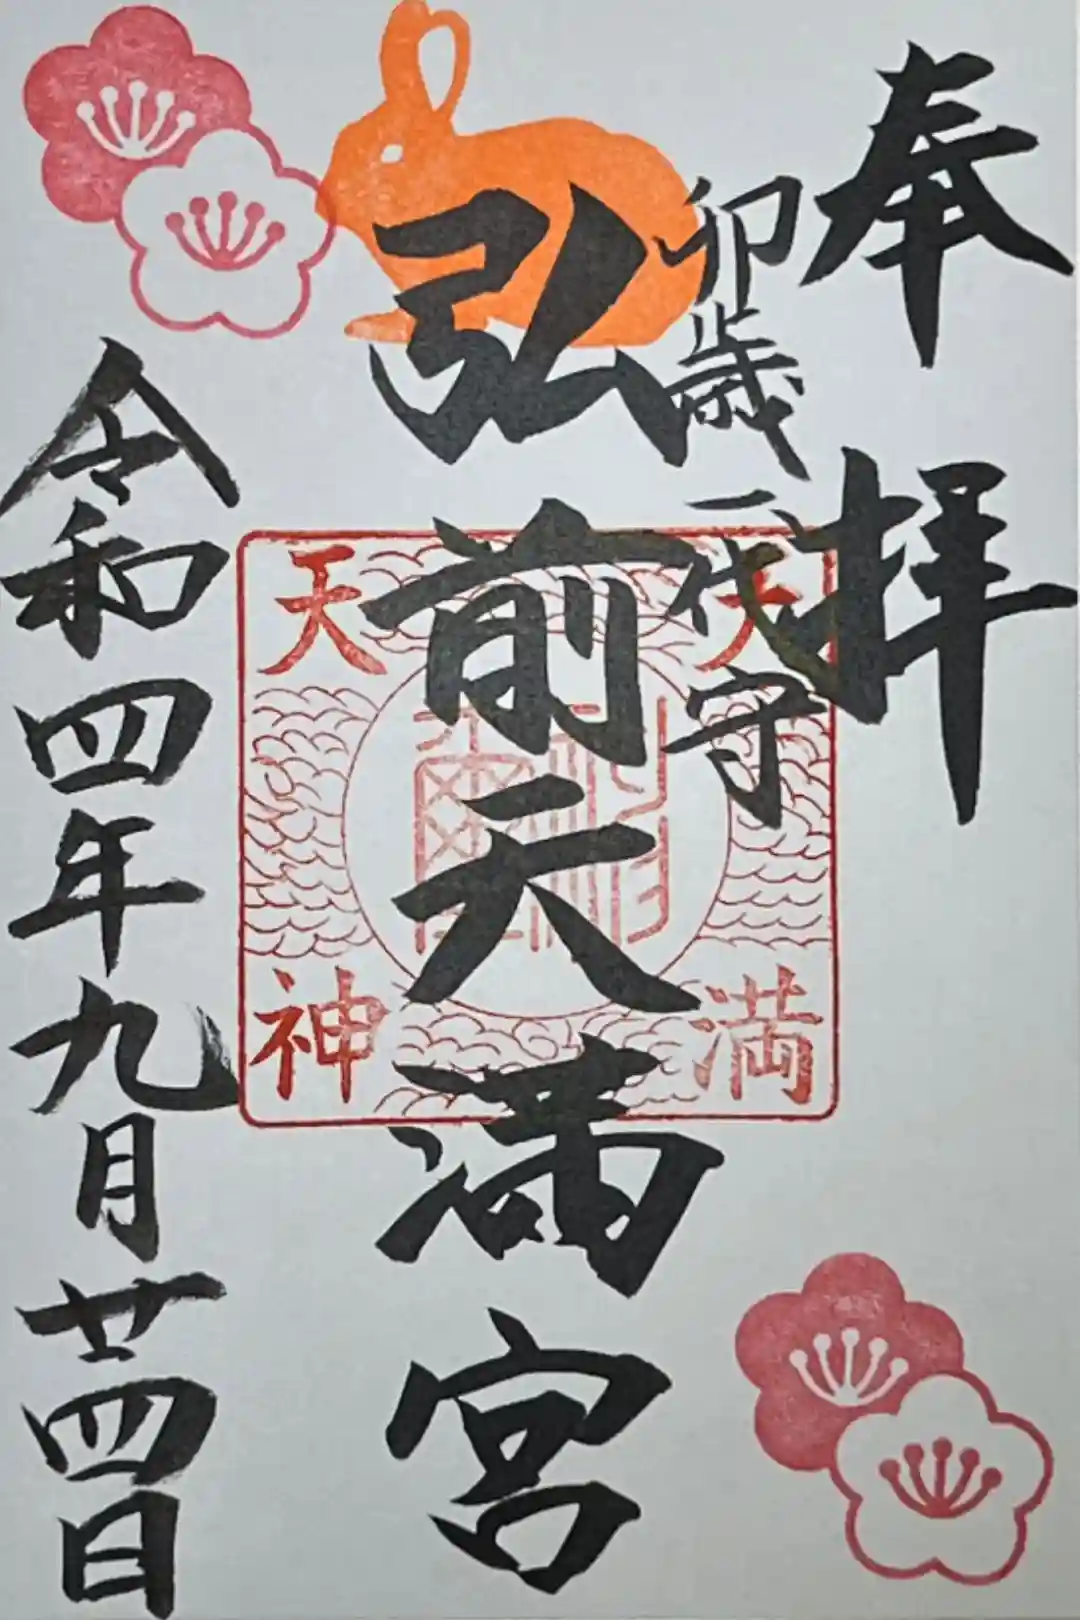 奉拝
卯歳一代守
弘前天満宮
天満
天神
令和四年九月廿四日